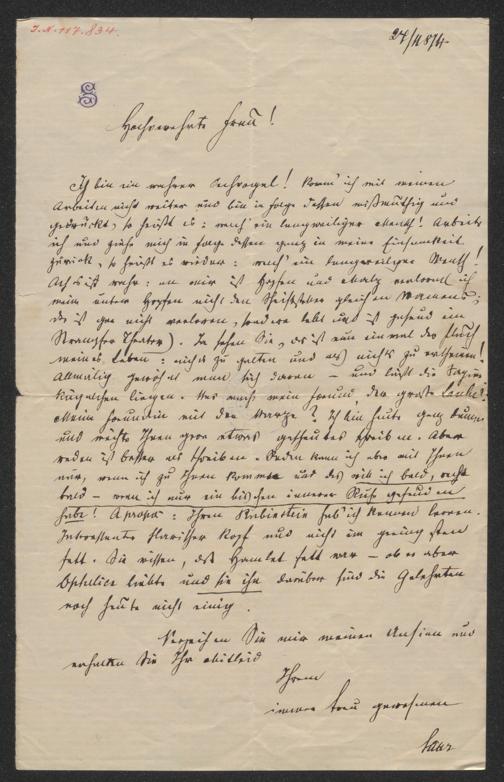 I.N. 117.834.
27/11 84.
S
Hochverehrte Frau!
Ich bin ein wahrer Pechvogel! Komm' ich mit meinen
Arbeiten nicht weiter und bin in Folge dessen mißmuthig und
gedrückt, so heißt es: welch' ein langweiliger Mensch! Arbeite
ich und ziehe mich in Folge dessen ganz in meine Einsamkeit
zurück, so heißt es wieder: welch' ein langweiliger Mensch!
Ach es ist wahr: an mir ist Hopfen und Malz verloren! (ich
meine unter Hopfen nicht den Schriftsteller gleichen Namens;
der ist gar nicht verloren, sondern lebt und ist gesund am
Stampfer Theater). Ja sehen Sie, das ist nun einmal der Fluch
meines Lebens: nichts zu gelten und als nichts zu erscheinen!
Allmälig gewöhnt man sich daran – und läßt die Dinge
liegen. Was macht mein Freund, der große
Meine Freundin mit der Warze? Ich bin heute ganz dumm
und möchte Ihnen gern etwas gescheutes schreiben. Aber
reden ist besser als schreiben. Reden kann ich aber mit Ihnen
nur, wenn ich zu Ihnen komme und das will ich bald, recht
bald – wenn ich nur ein bischen innere Ruhe gefunden
habe! Apropos: Ihren Rubinstein hab' ich kennen lernen.
Interessanter slavischer Kopf und nicht im geringsten
fett. Sie wissen, daß Hamlet fett war – ob er aber
Ophelia liebte und sie ihn darüber sind die Gelehrten
noch heute nicht einig.
Verzeihen Sie mir meinen Unsinn und
erhalten Sie Ihr Mitleid
Ihrem
immer treu gewesenen
Saar